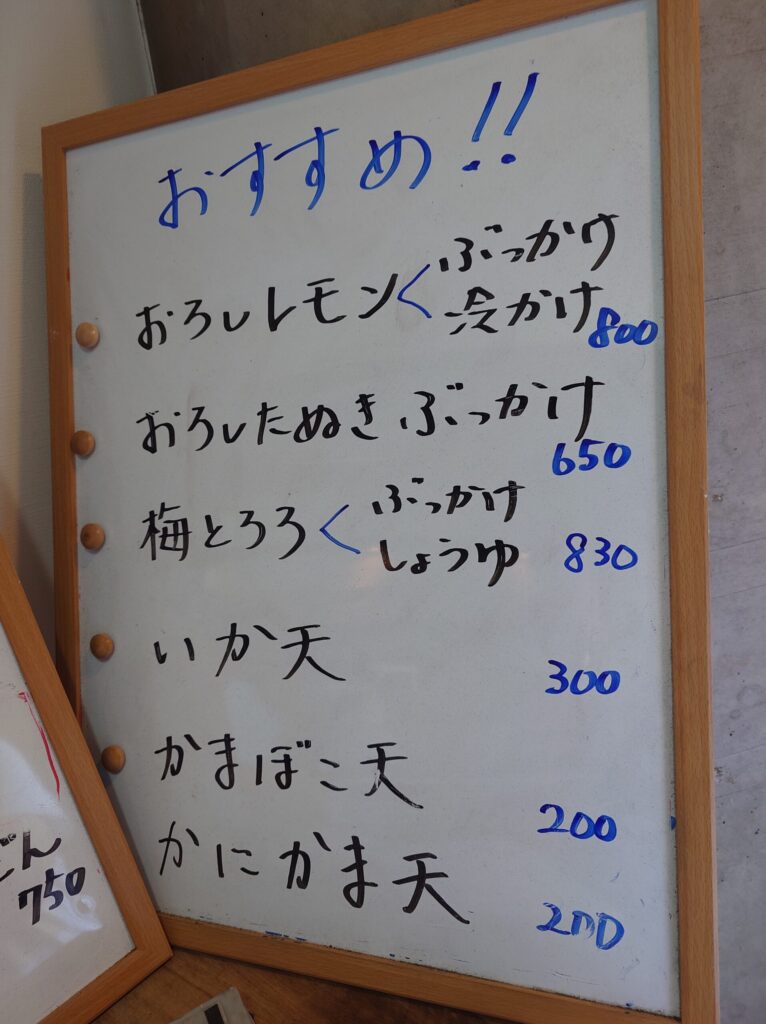 おすすめ!!
おろしレモン< ぶっかけ
冷かけ 800
おろしたぬきぶっかけ
650
梅とろろ< ぶっかけ
しょうゆ 830
いか天 300
かまぼこ天
200
かにかま天
200
どん
750